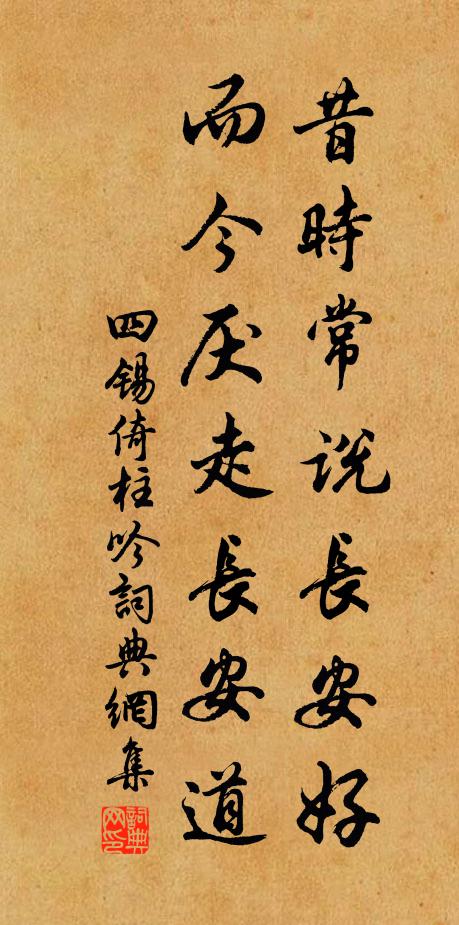 昔時常说長安好
而今厌走長安道
四锡倚柱吟詞典網集
詞典網印